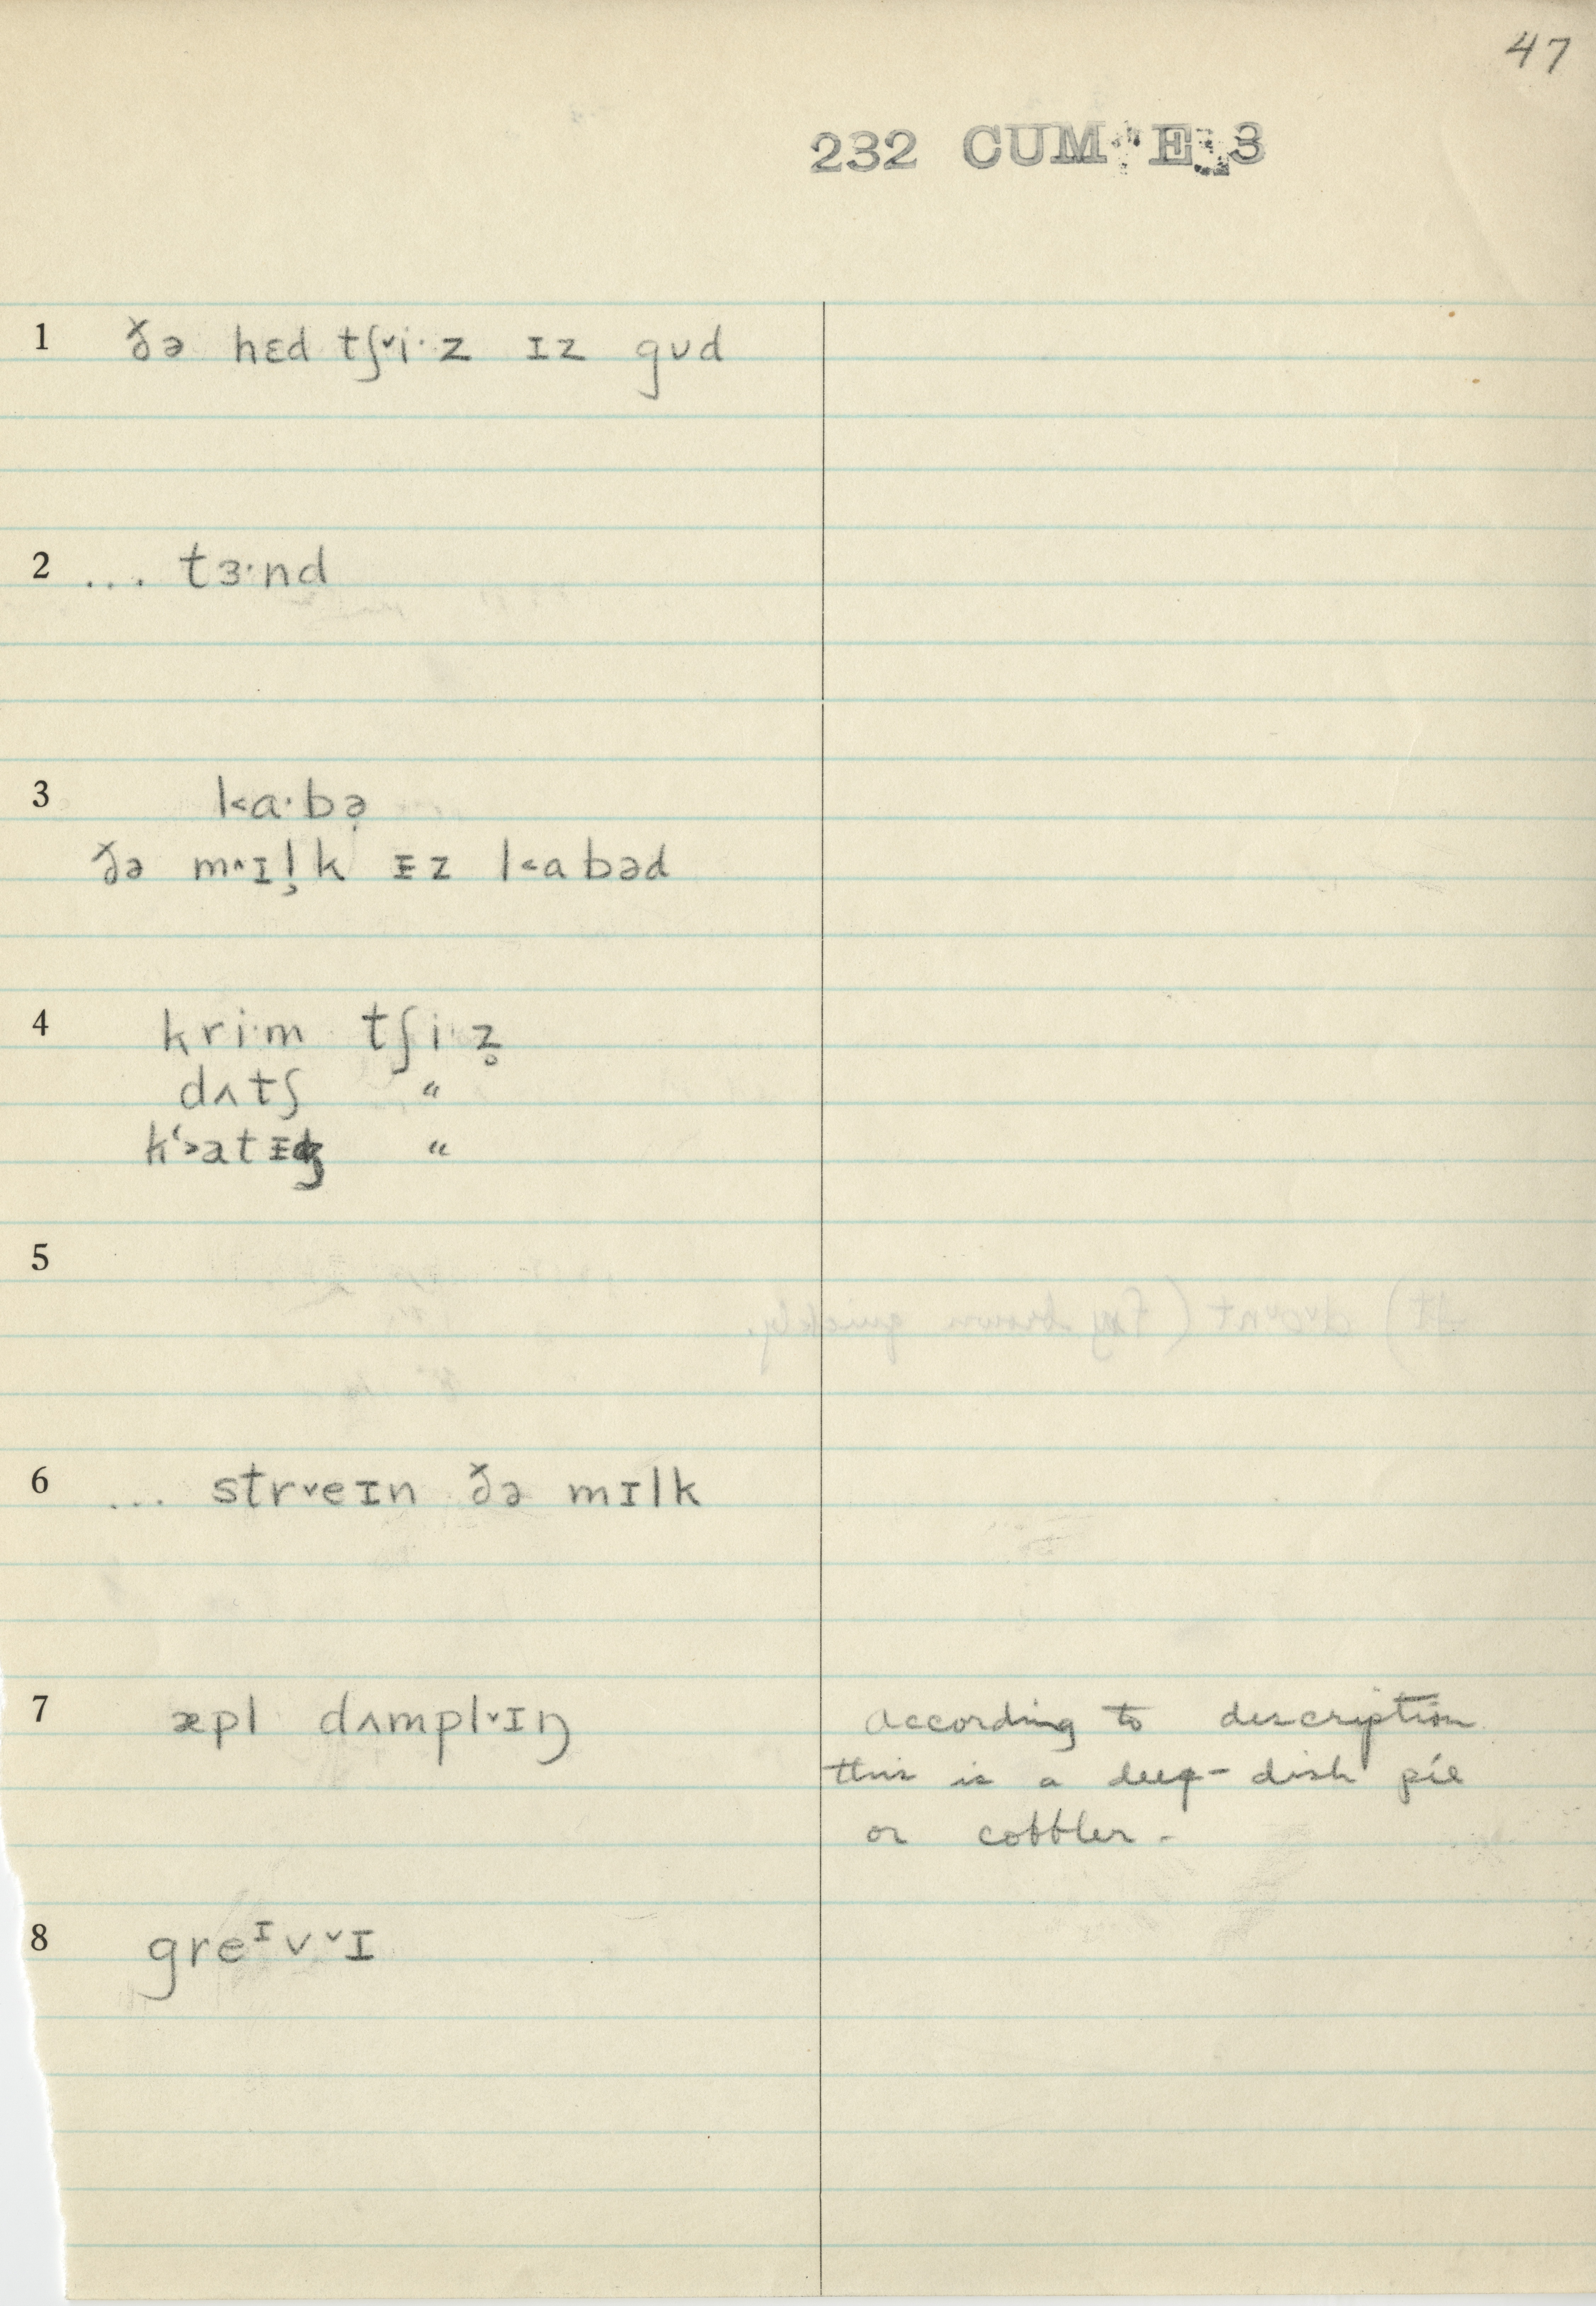 47
232 CUM E 3
1 ðə hɛd tʃ˅i·z ɪz gʊd
2 ... tɜ·nd
3 k˂a·bə̣
ðə m˄ɪl̹k ɪz k˂abəd
4 kri·m tʃi·z̥
dʌtʃ "
k‘˃atɪdʒ "
5
6 ... str˅eɪn ðə mɪlk
7 æpl dʌmpl˅ɪŋ
according to description
this is a deep-dish pie
or cobbler.
8 greᶦv˅ɪ